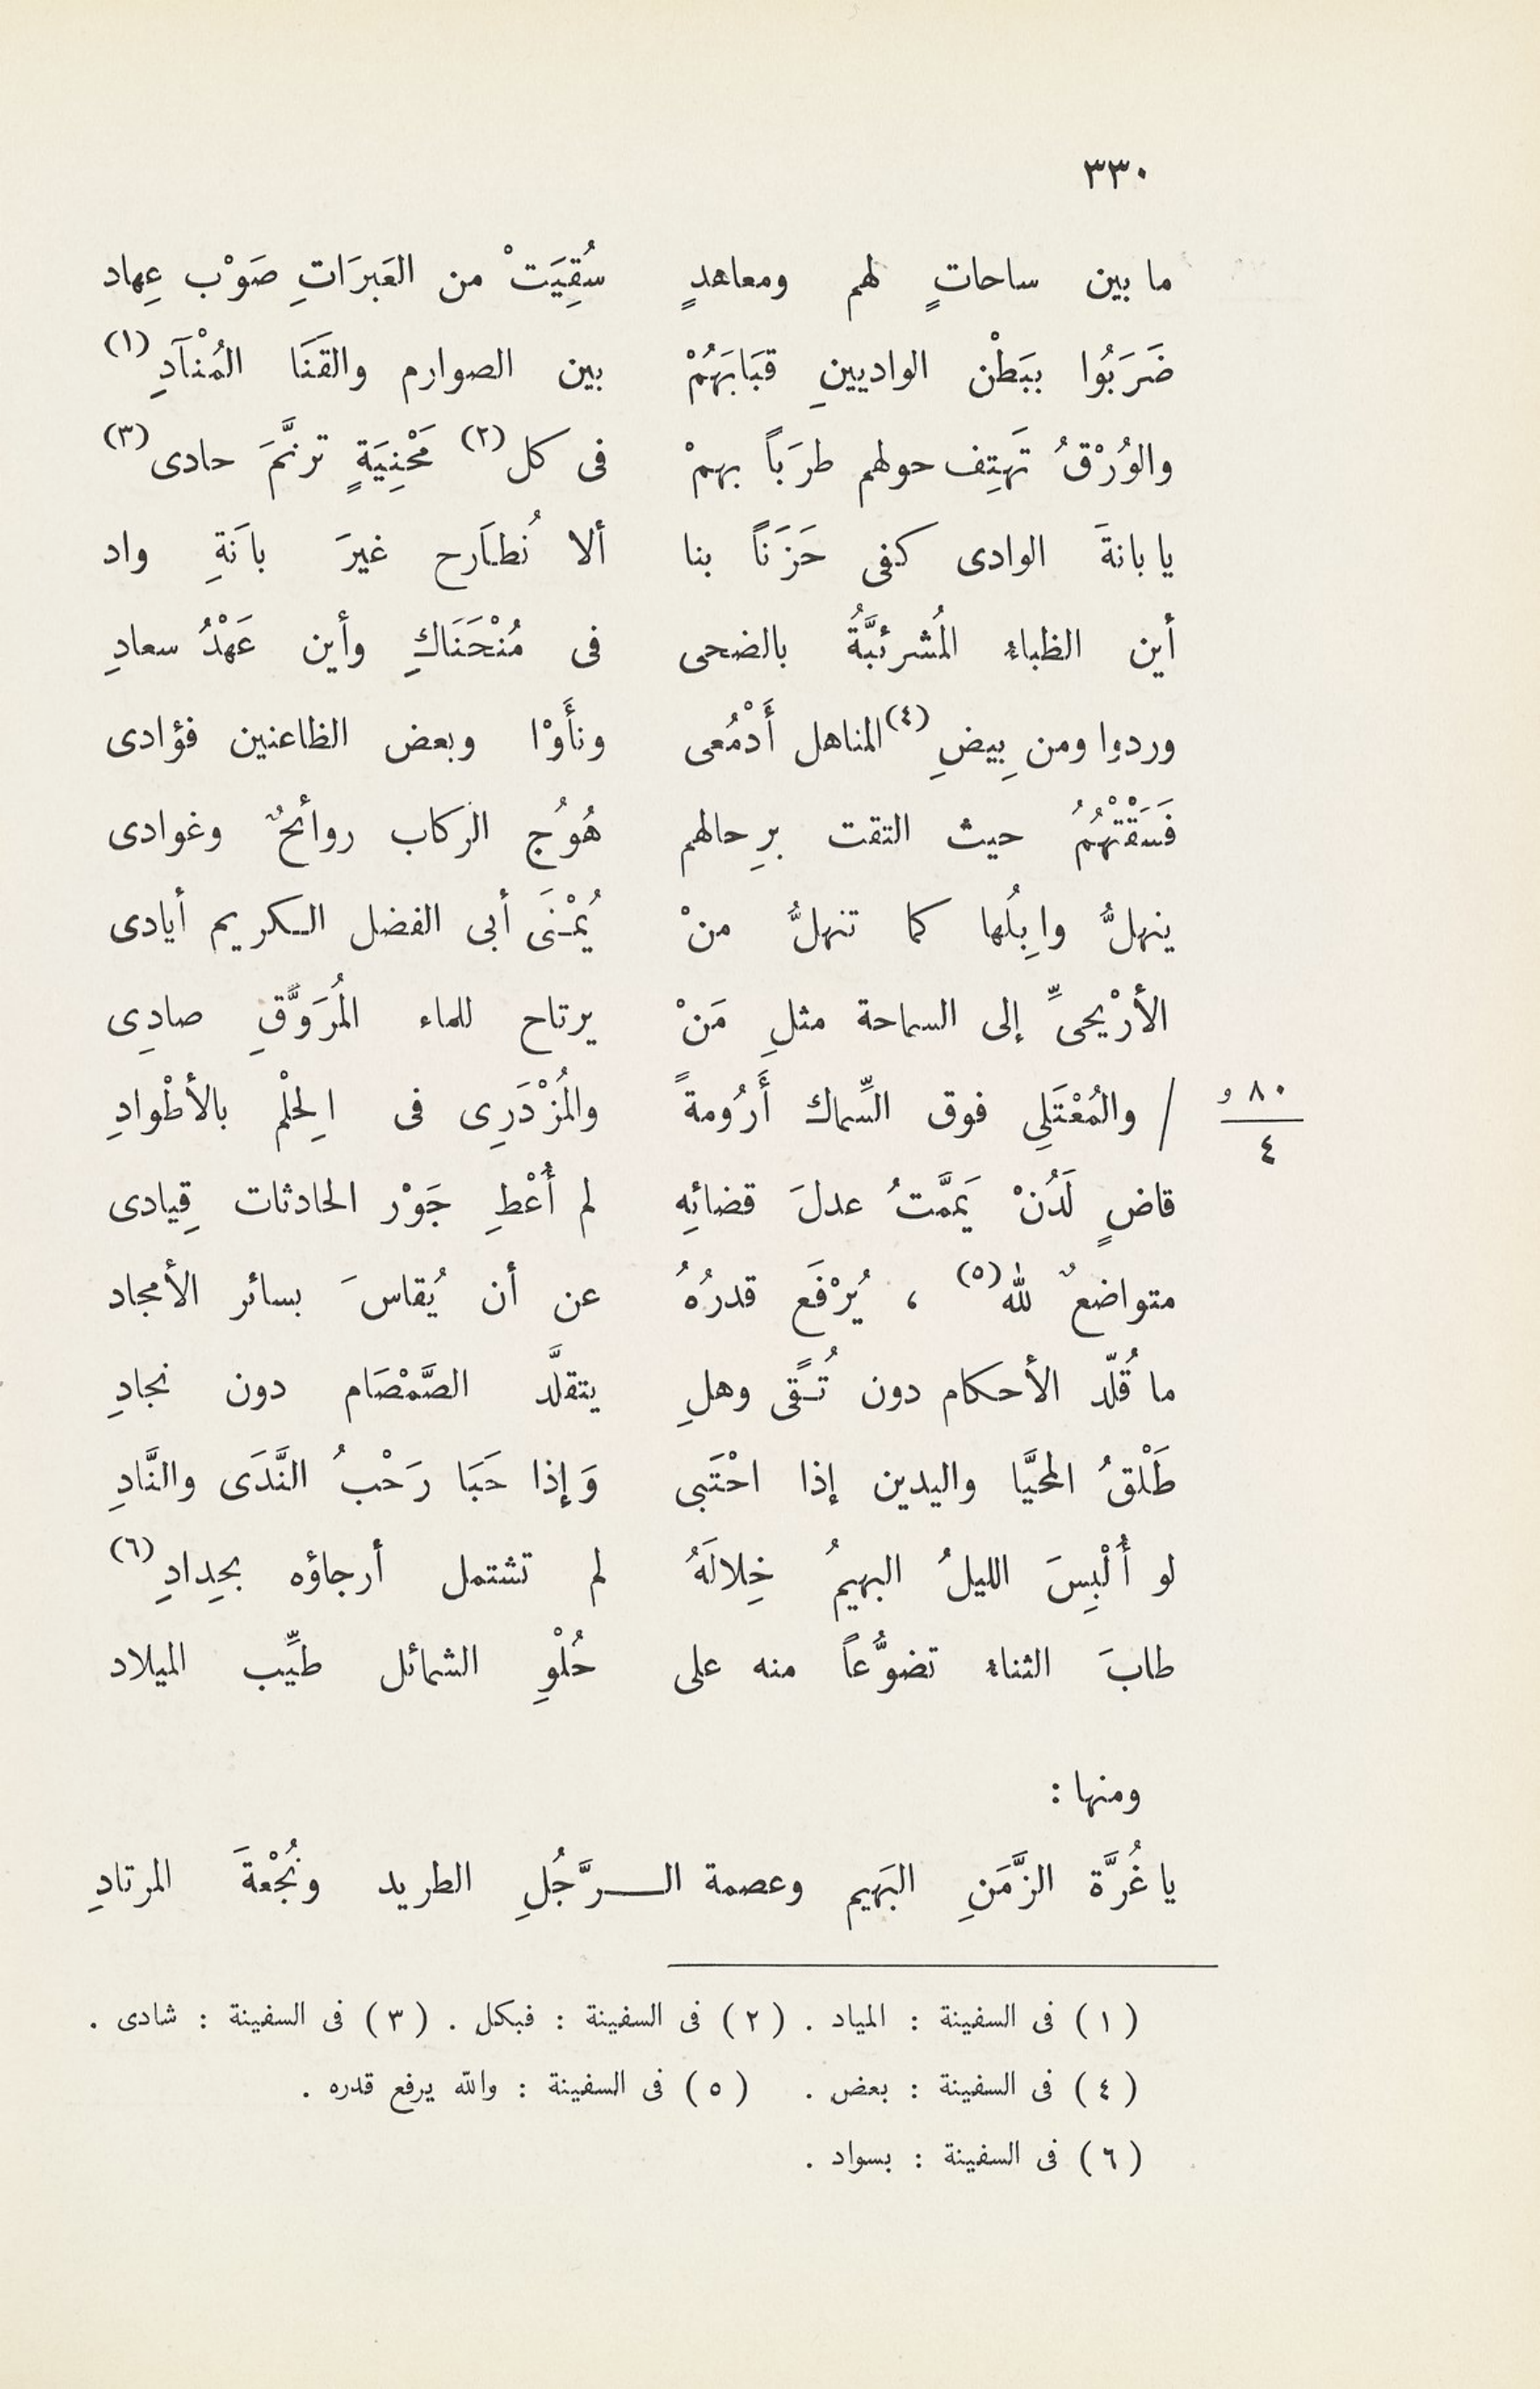 ٣٣٠
ما بين ساحاتٍ لهم ومعاهدٍ سُقِيَتْ من العَبرَاتِ صَوْب عِهاد
ضَرَبُوا ببَطْن الواديينِ قبَابَهُمْ بين الصوارم والقَنَا المُنْآدِ (١)
والوُرْقُ تَهتِف حولهم طرَباً بهمْ فى كل (٢) مَحْنِيَةٍ ترنَّمَ حادى (٣)
يا بانةَ الوادى كفى حَزَناً بنا ألا نُطاَرح غيرَ باَنَةِ واد
أين الظباءِ المُشرئبَّةُ بالضحى فى مُنْحَنَاكِ وأين عَهْدُ سعادِ
وردوا ومن بِيضِ (٤) المناهل أَدْمُعى ونأَوْا وبعض الظاعنين فؤادى
فَسَقَتْهُمُ حيث التقت برِحالهم هُوُج الركاب روأئحٌ وغوادى
ينهلُّ وابِلُها كما تنهلُّ منْ يُمْنَى أبى الفضل الكريم أيادى
الأرْيحىِّ إلى السماحة مثلِ مَنْ يرتاح للماء المُرَوَّقِ صادِى
٨٠ و / ٤
/ والمُعْتَلِى فوق السِّماك أَرُومةً والمُزْدَرِى فى الِحلْم بالأطْوادِ
قاضٍ لَدُنْ يَمَّمتُ عدلَ قضائِهِ لم أُعْطِ جَوْر الحادثات قِيادى
متواضعٌ لله (٥) ، يُرْفَع قدرُهُ عن أن يُقاسَ بسائر الأمجاد
ما قُلّد الأحكام دون تُقًى وهلِ يتقلَّد الصَّمْصَام دون نجادِ
طَلْقُ المحيَّا واليدين إذا احْتَبى وَإذا حَبَا رَحْبُ النَّدَى والنَّادِ
لو أُلْبِسَ الليلُ البهيمُ خِلالَهُ لم تشتمل أرجاؤه بحِدادِ (٦)
طابَ الثناءِ تضوُّعاً منه على حُلْوِ الشمائل طيِّب الميلاد
ومنها :
يا غُرَّة الزَّمَنِ البَهيم وعصمة الرَّجُلِ الطريد ونُجْعةَ المرتادِ
( ١ ) فى السفينة : المياد . ( ٢ ) فى السفينة : فبكل . ( ٣ ) فى السفينة : شادى .
( ٤ ) فى السفينة : بعض . ( ٥ ) فى السفينة : والله يرفع قدره .
( ٦ ) فى السفينة : بسواد .